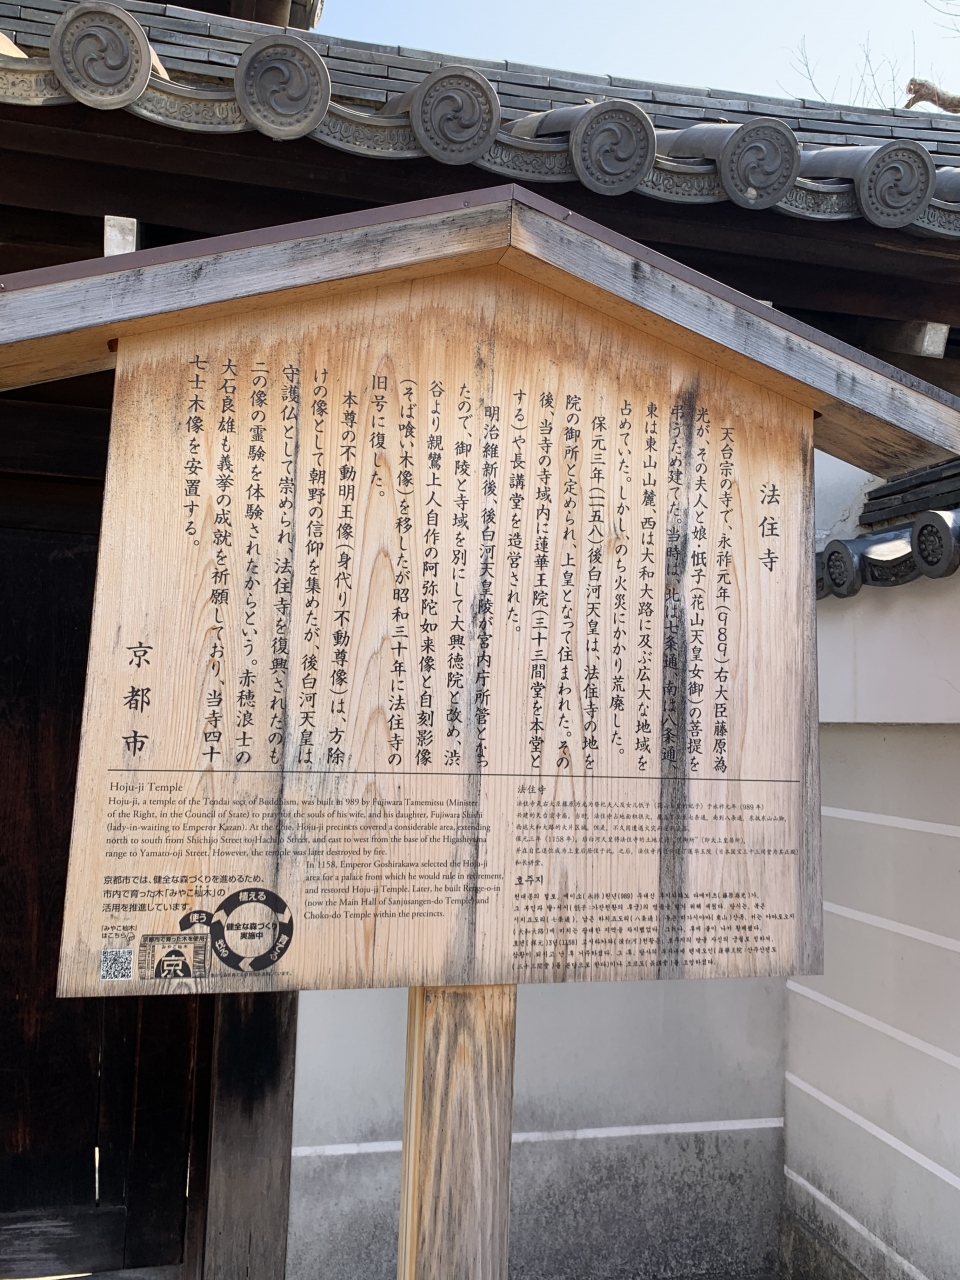 法住寺
天台宗の寺で、永祚元年(989)右大臣藤原為
光が、その夫人と娘 忯子(花山天皇女御)の菩提を
弔うため建てた。当時は、北は七条通、南は八条通、
東は東山山麓、西は大和大路に及ぶ広大な地域を
占めていた。しかし、のち火災にかかり荒廃した。
保元三年(一一五八)後白河天皇は、法住寺の地を
院の御所と定められ、上皇となって住まわれた。その
後、当寺の寺域内に蓮華王院(三十三間堂を本堂と
する)や長講堂を造営された。
明治維新後、後白河天皇陵が宮内庁所管となっ
たので、御陵と寺域を別にして大興徳院と改め、渋
谷より親鸞上人自作の阿弥陀如来像と自刻影像
(そば喰い木像)を移したが昭和三十年に法住寺の
旧号に復した。
本尊の不動明王像(身代り不動尊像)は、方除
けの像として朝野の信仰を集めたが、後白河天皇は
守護仏として崇められ、法住寺を復興されたのも
この像の霊験を体験されたからという。赤穂浪士の
大石良雄も義挙の成就を祈願しており、当寺四十
七士木像を安置する。
京都市
Hoju-ji Temple
Hoju-ji, a temple of the Tendai sect of Buddhism, was built in 989 by Fujiwara Tamemitsu (Minister
of the Right, in the Council of State) to pray for the souls of his wife, and his daughter, Fujiwara Shishi
(lady-in-waiting to Emperor Kazan). At the time, Hoju-ji precincts covered a considerable area, extending
north to south from Shichijo Street to Hachijo Street, and east to west from the base of the Higashiyama
range to Yamato-oji Street. However, the temple was later destroyed by fire.
In 1158, Emperor Goshirakawa selected the Hoju-ji
area for a palace from which he would rule in retirement,
and restored Hoju-ji Temple. Later, he built Renge-o-in
(now the Main Hall of Sanjusangen-do Temple) and
Choko-do Temple within the precincts.
京都市では、健全な森づくりを進めるため、
市内で育った木「みやこ杣木」の
活用を推進しています。
「みやこ杣木」
はこちら
京都市で育った木を使用
みやこ杣木
京
植える
使う
健全な森づくり
実施中
法住寺
호주지